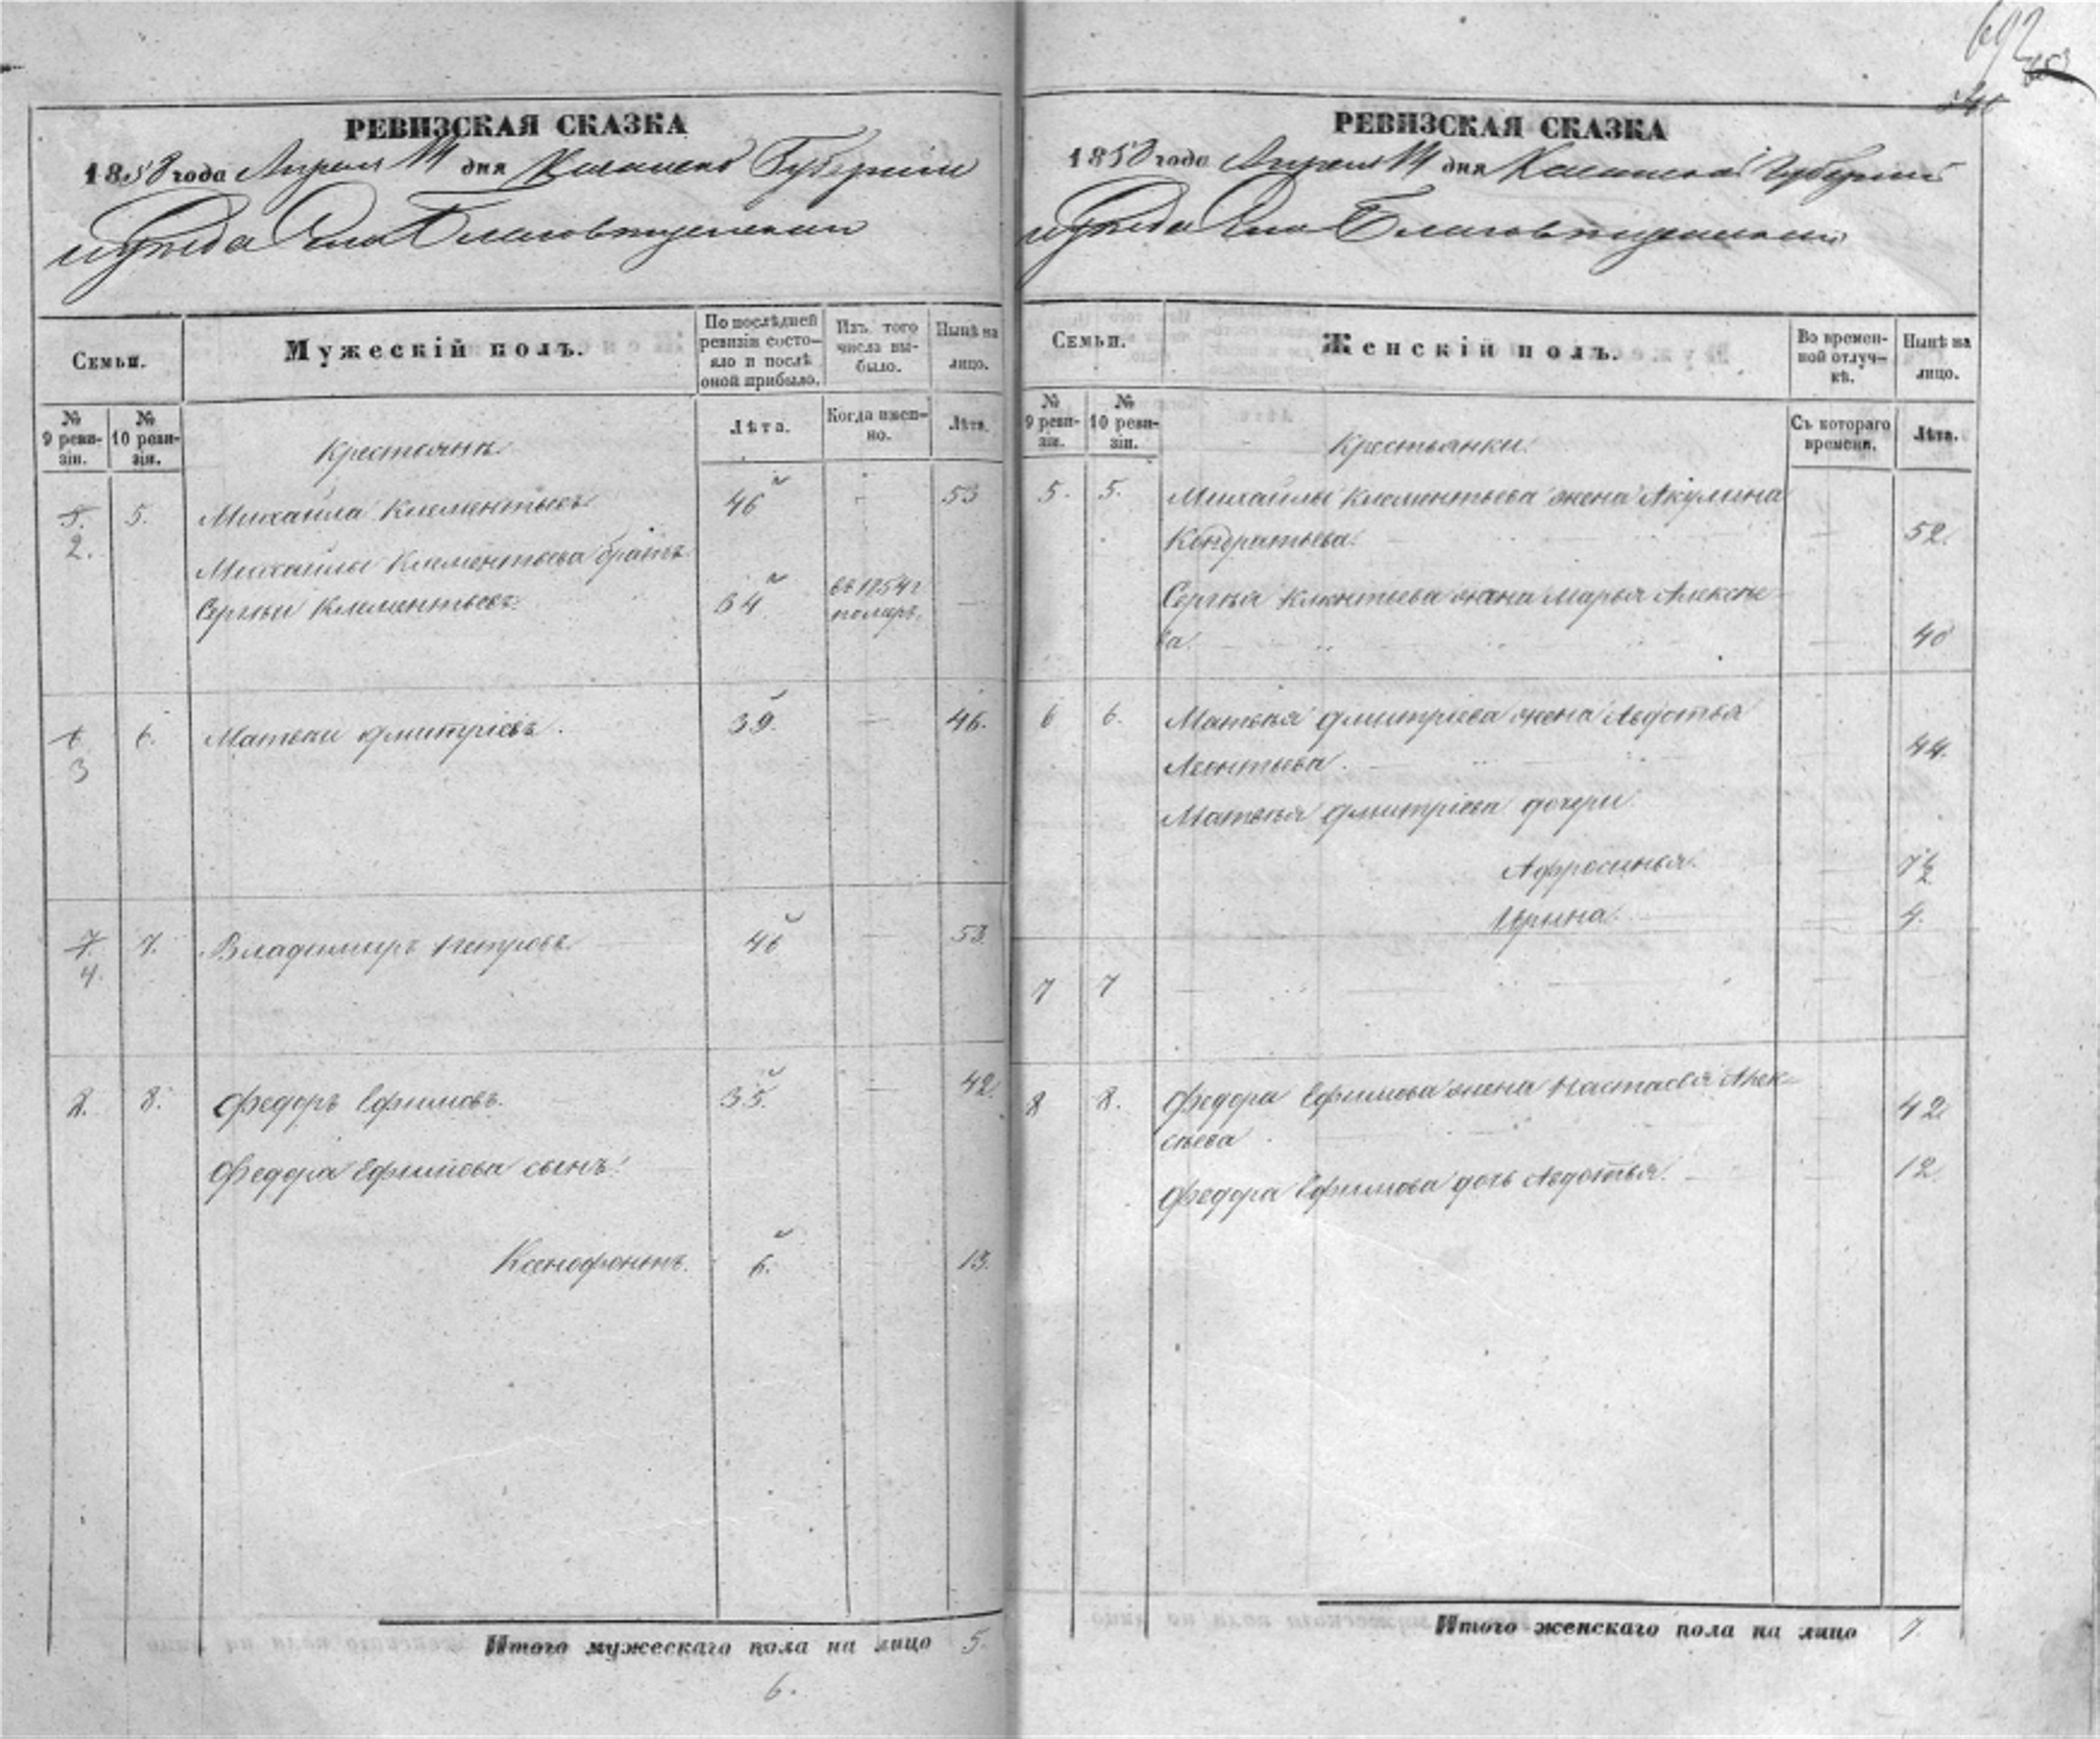 692
РЕВИЗСКАЯ СКАЗКА
1858 года Апреля 14 дня Губернiи
уѣзда Села Благовѣщенскаго
Семьи.
Мужескiй полъ.
По послѣдней ревизiи состояло и послѣ оной прибыло.
Изъ того числа выбыло.
Нынѣ на лицо.
№ 9 ревизiи.
№ 10 ревизiи.
Лѣта.
Когда именно.
Лѣта.
Крестьянъ
5. 2. 5. Михаила Клементьевъ 46 53
Михайлы Клементьева братъ
Сергѣй Клементьевъ 34 въ 1854 г померъ.
6 3 6. Матвѣй Дмитрiевъ. 39. 46.
7. 4. 7. Владимиръ Петровъ 46 53.
8. 8. Федоръ Ефимовъ. 35. 42
Федора Ефимова сынъ:
Ксенофонтъ. 6. 13.
Итого мужескаго пола на лицо 5.
6.
РЕВИЗСКАЯ СКАЗКА
1858 года Апреля 14 дня Губернiи
уѣзда Села Благовѣщенскаго
Семьи.
Женскiй полъ.
Во временной отлучкѣ.
Нынѣ на лицо.
№ 9 ревизiи.
№ 10 ревизiи.
Съ котораго времени.
Лѣта.
Крестьянки.
5. 5. Михайлы Клементьева жена Акулина
Кондратьева. 52.
Сергѣя Клементьева жена Марья Алексѣе
ва. 40
6 6. Матвѣя Дмитрiева жена Авдотья
Леонтьева. 44.
Матвѣя Дмитрiева дочери
Афросинья. 7½
Ирина. 4.
7 7
8 8. Федора Ефимова жена Настасья Алек-
сѣева. 42
Федора Ефимова дочь Авдотья. 12.
Итого женскаго пола на лицо 7.